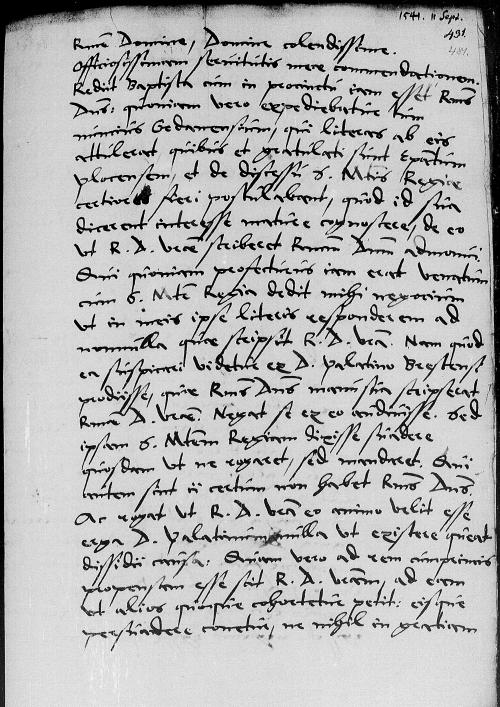 1541. 11 Sept.
491.
481.
Rme Domine, Domine colendissime.
Officiosissimam servitutis mee commendationem.
Rediit Baptista cum in procinctu iam esset Rmus
Dnus: quoniam vero expediebatur tum
nuncius Gedanensium, qui literas ab eis
attulerat quibus et gratulati sunt Epatum
plocensem, et de discessu S. Mtis Regie
certiores fieri postulabant, quod id sua
dicerent interesse mature cognoscere, de eo
ut R. D. vrae scriberet Rmum Dnum admonui.
Qui quoniam profecturus iam erat venatum
cum S. Mte Regia dedit mihi negocium
ut in meis ipse literis responderem ad
nonnulla quae scripsit R. D. vra. Nam quod
ea suspicari videtur ex D. palatino Brestensi
prodiisse, quae Rmus Dnus manu sua scripserat
Rmae D. vrae. Negat se ex eo audivisse. Sed
ipsam S. Mtem Regiam dixisse suadere
quosdam ut ne rogaret, sed mandaret. Qui
autem sint ii certum non habet Rmus Dnus.
Ac rogat ut R. D. vra eo animo velit esse
erga D. palatinum nulla ut existere queat
dissidii causa: Quam vero ad rem cumprimis
propensam esse scit R. D. vram, ad eam
ut alios quoque cohortetur petit: eisque
persuadere conetur, ne nihil in gratiam